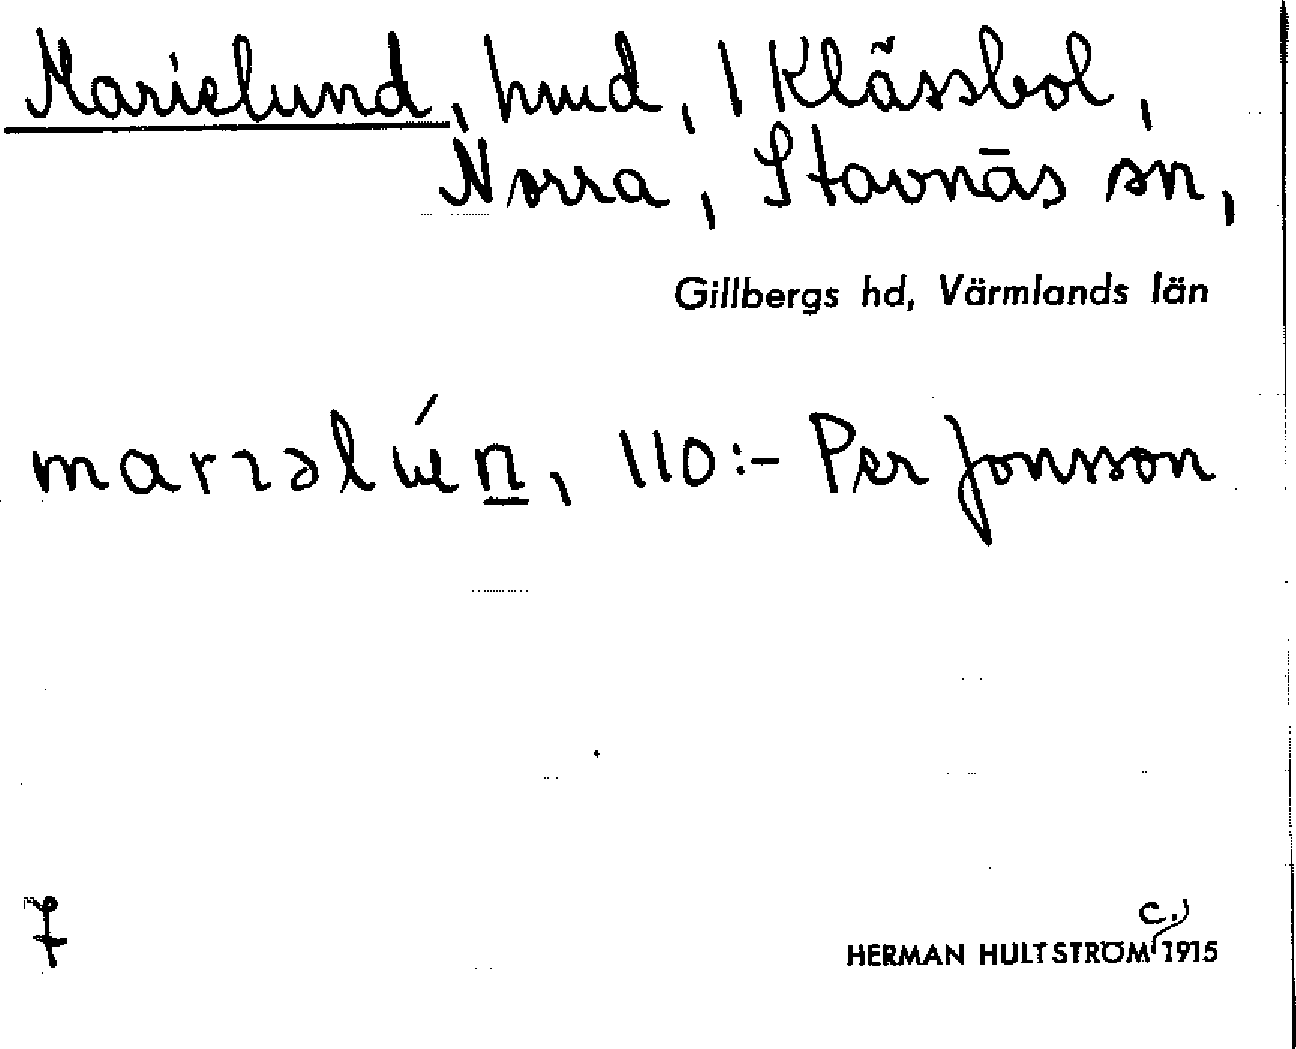 Marielund, hmd, 1 Klässbol,
Norra, Stavnäs sn,
Gillbergs hd, Värmlands län
marıəlúen, 110:- Per Jonsson
7
c.
HERMAN HULTSTRÖM 1915